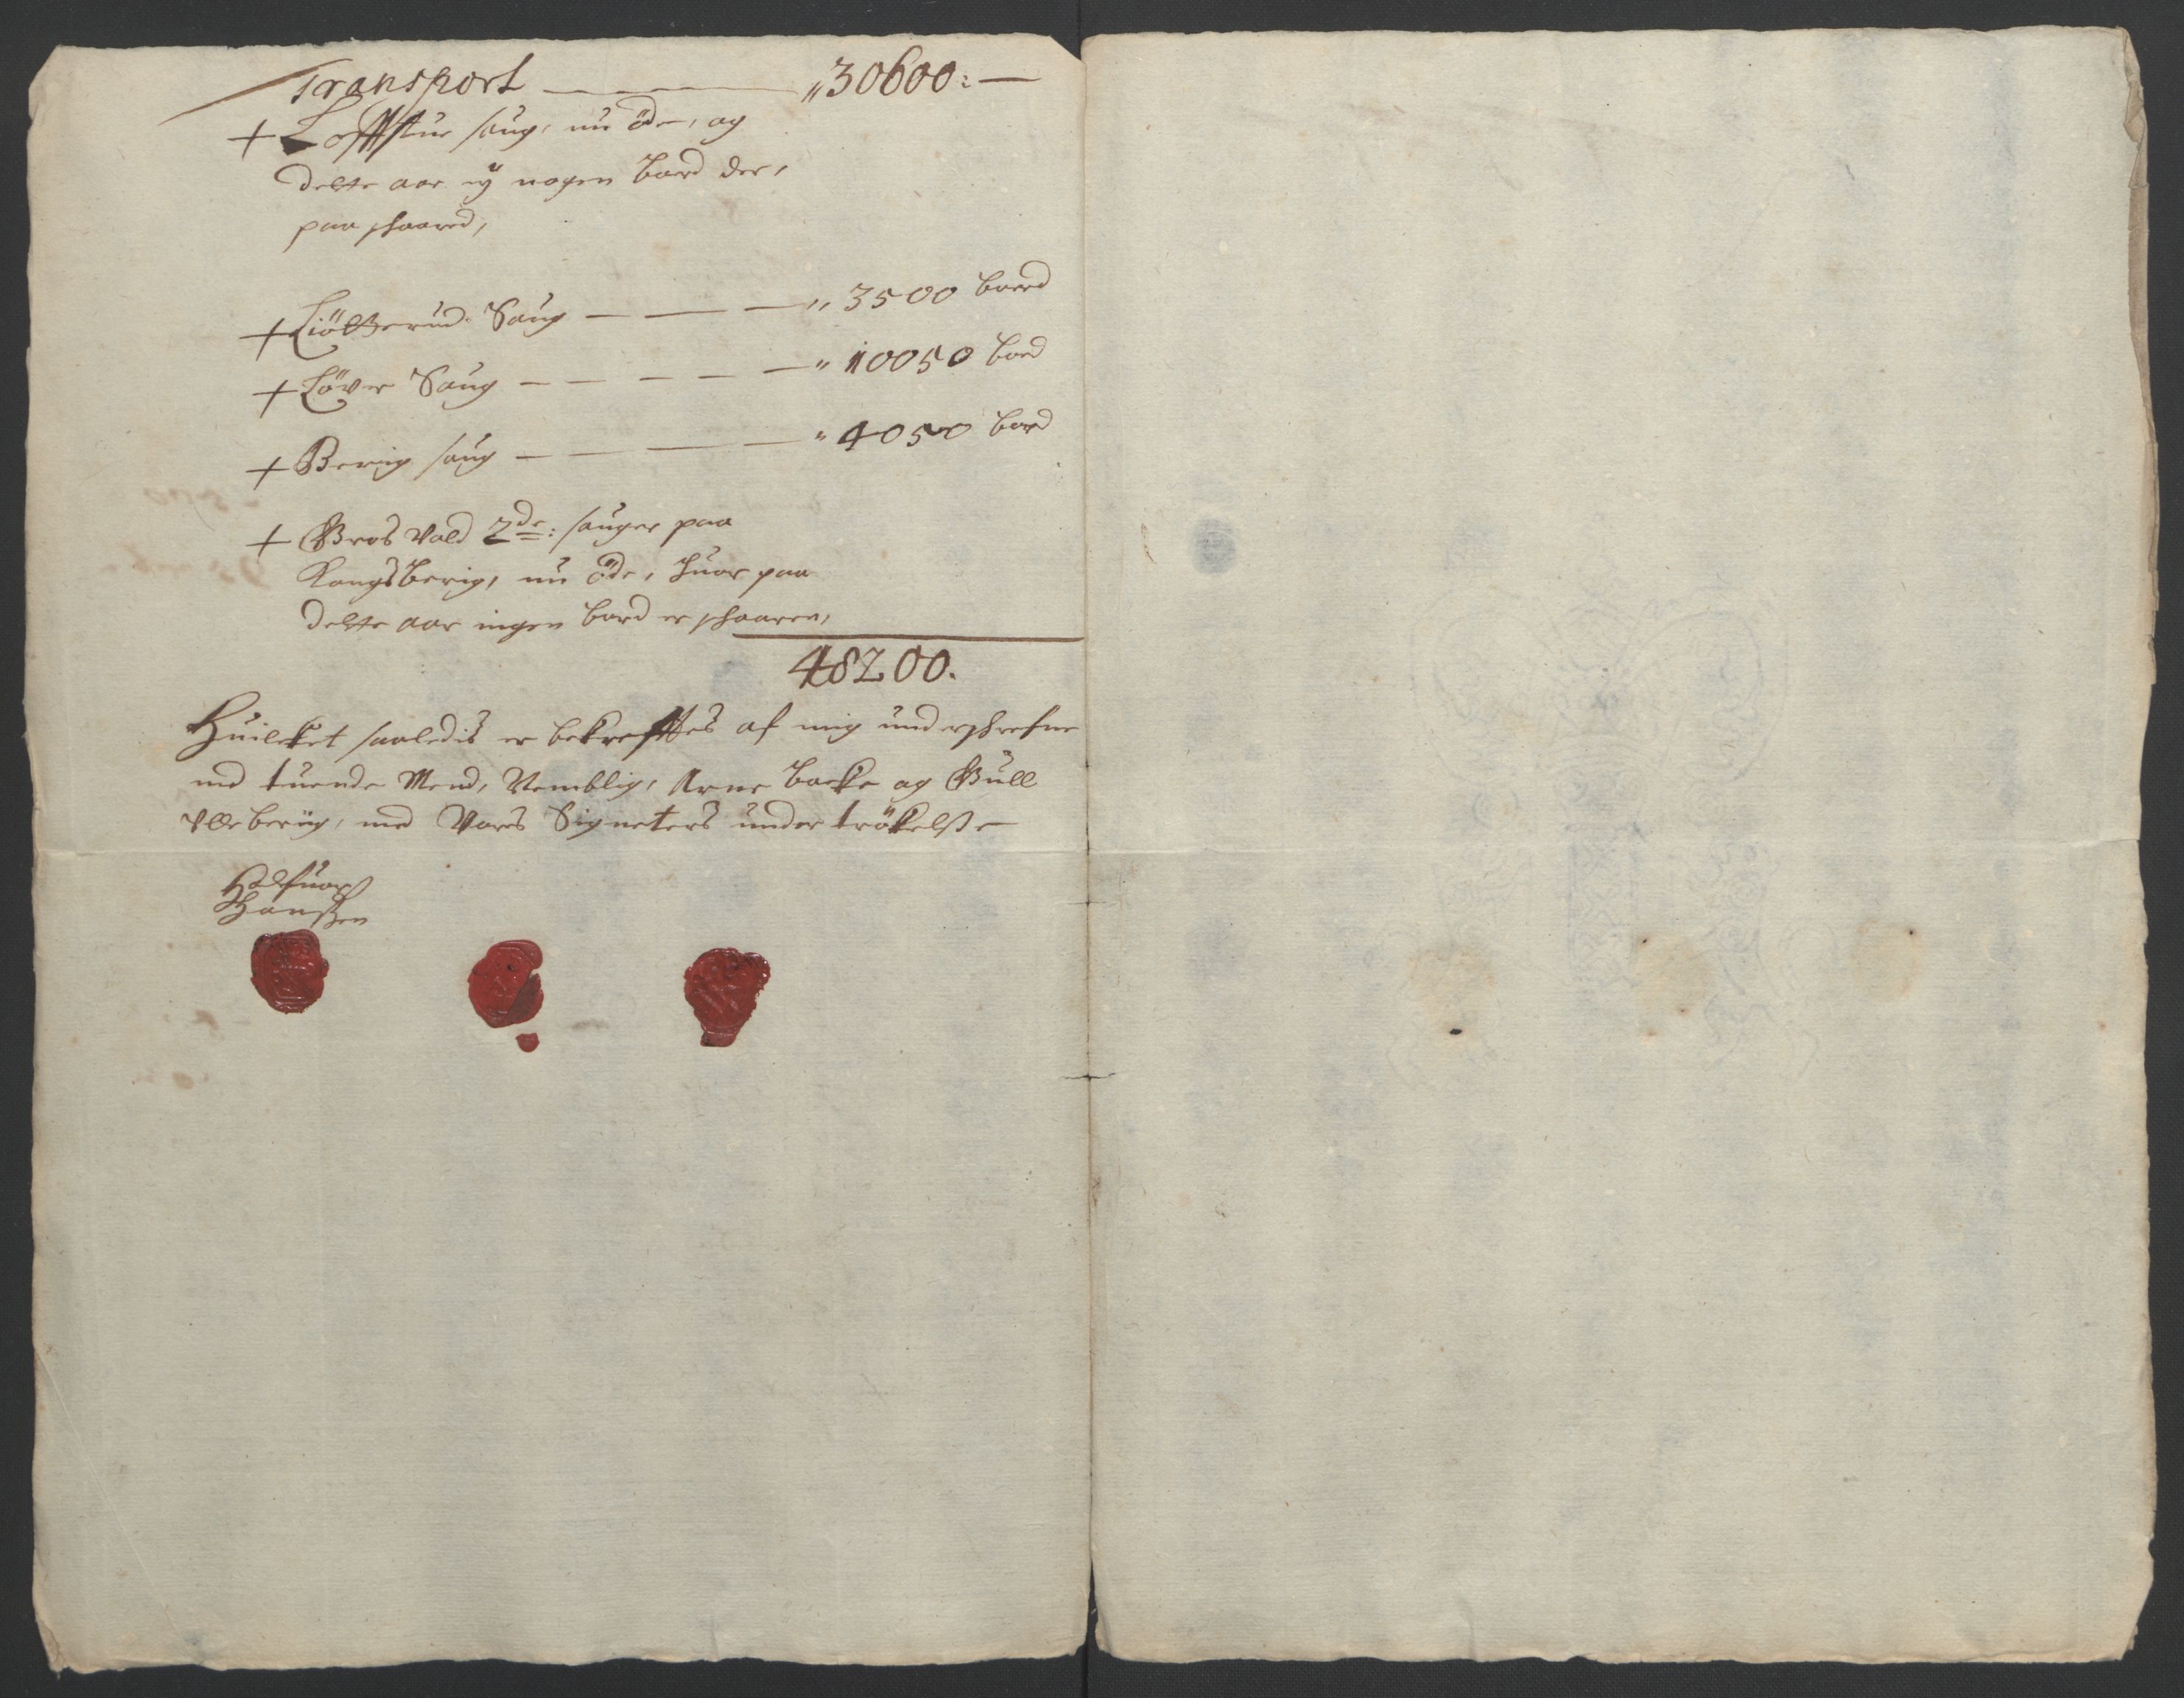 Transport — — — — „30600:—
+ Lofftstue saug, nu öde, og
dette aar ey nogen bord der,
paa skaared,
+ Liölterud Saug — — — „ 3500 bord
+ Löver Saug — — — — — „ 10050 bord
+ Berrig saug — — — — „ 4050 bord
+ Gros Vold 2de: sauger paa
Kongsberrig, nu öde, huor paa
dette aar ingen bord er skaaren,
48200.
Huilcket saaledis er bekrefftes af mig underskrefne
med tuende Mend, Nemblig, Arne backe og Gull
Ulleberrig, med Vores Signeters under tröckelsse
Halfuor
Hanssen